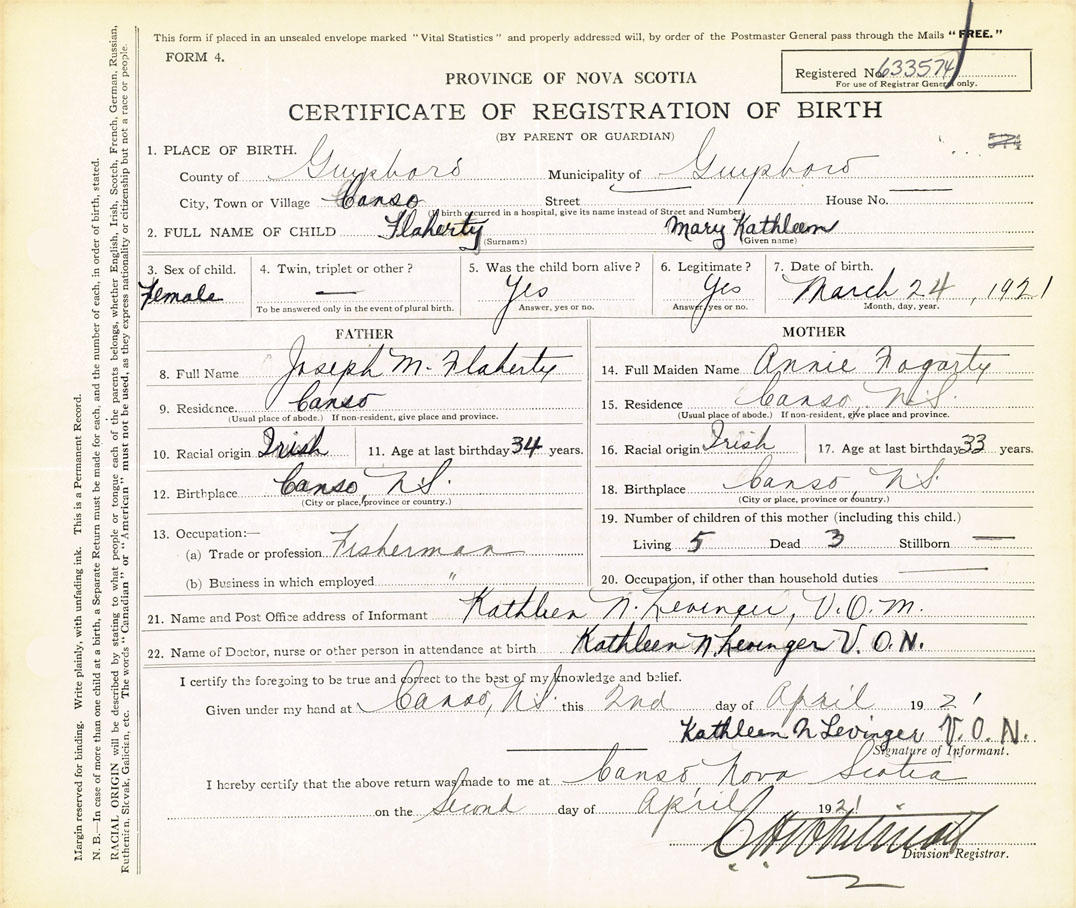 This form if placed in an unsealed envelope marked "Vital Statistics" and properly addressed will, by order of the Postmaster General pass through the Mails "FREE."
FORM 4.
Registered No. 633574
For use of Registrar General only.
PROVINCE OF NOVA SCOTIA
CERTIFICATE OF REGISTRATION OF BIRTH
(BY PARENT OR GUARDIAN)
1. PLACE OF BIRTH.
County of Guysboro Municipality of Guysboro
City, Town or Village Canso Street House No.
(If birth occurred in a hospital, give its name instead of Street and Number)
2. FULL NAME OF CHILD Flaherty Mary Kathleen
(Surname) (Given name)
3. Sex of child. 4. Twin, triplet or other? 5. Was the child born alive? 6. Legitimate? 7. Date of birth.
Female — Yes Yes March 24, 1921
To be answered only in the event of plural birth. Answer, yes or no. Answer, yes or no. Month, day, year.
FATHER
8. Full Name Joseph M. Flaherty
9. Residence. Canso
(Usual place of abode.) If non-resident, give place and province.
10. Racial origin Irish 11. Age at last birthday 34 years.
12. Birthplace Canso, N.S.
(City or place, province or country.)
13. Occupation:—
(a) Trade or profession Fisherman
(b) Business in which employed "
MOTHER
14. Full Maiden Name Annie Fogarty
15. Residence Canso, N.S.
(Usual place of abode.) If non-resident, give place and province.
16. Racial origin Irish 17. Age at last birthday 33 years.
18. Birthplace Canso, N.S.
(City or place, province or country.)
19. Number of children of this mother (including this child.)
Living 5 Dead 3 Stillborn —
20. Occupation, if other than household duties —
21. Name and Post Office address of Informant Kathleen N. Levinger, V.O.N.
22. Name of Doctor, nurse or other person in attendance at birth Kathleen N Levinger V.O.N.
I certify the foregoing to be true and correct to the best of my knowledge and belief.
Given under my hand at Canso, N.S. this 2nd day of April 1921
Kathleen N Levinger V.O.N.
Signature of Informant.
I hereby certify that the above return was made to me at Canso Nova Scotia
on the Second day of April 1921
Division Registrar.
Margin reserved for binding. Write plainly, with unfading ink. This is a Permanent Record.
N. B.—In case of more than one child at a birth, a Separate Return must be made for each, and the number of each, in order of birth, stated.
RACIAL ORIGIN will be described by stating to what people or tongue each of the parents belongs, whether English, Irish, Scotch, French, German, Russian,
Ruthenian, Slovak, Galician, etc. The words "Canadian" or "American" must not be used, as they express nationality or citizenship but not a race or people.